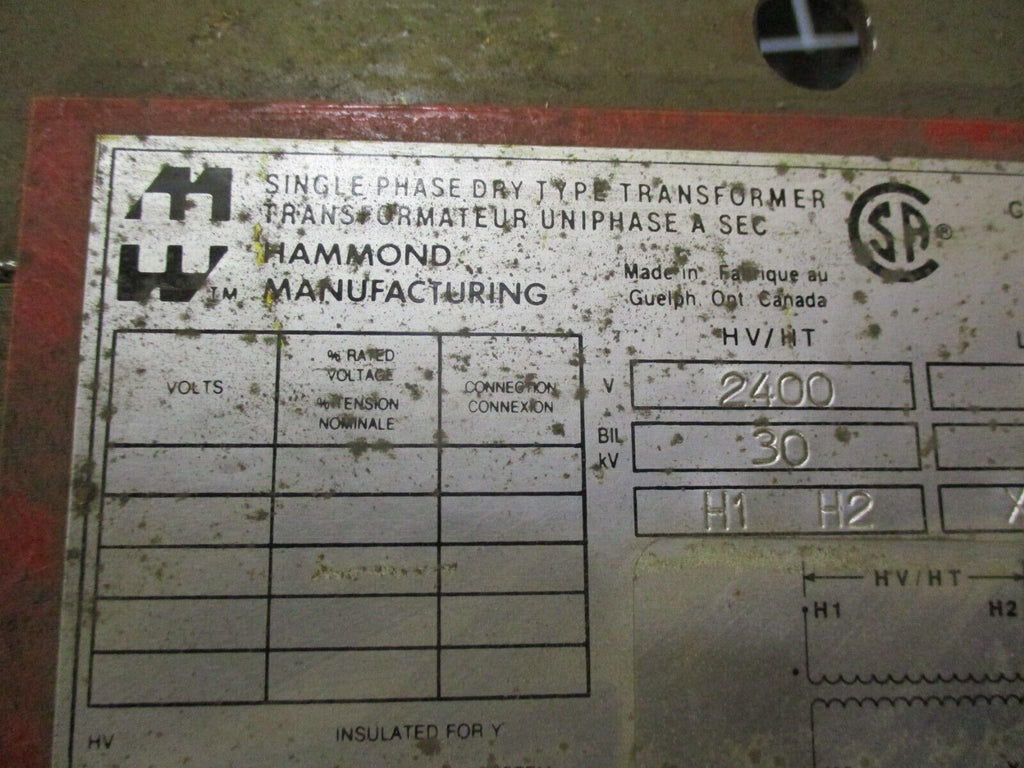 SINGLE PHASE DRY TYPE TRANSFORMER
TRANSFORMATEUR UNIPHASE A SEC
HAMMOND
MANUFACTURING
TM
CSA®
Made in Fabrique au
Guelph, Ont. Canada
HV/HT
VOLTS
% RATED
VOLTAGE
% TENSION
NOMINALE
CONNECTION
CONNEXION
V 2400
BIL
kV 30
H1 H2
HV/HT
H1 H2
HV
INSULATED FOR Y